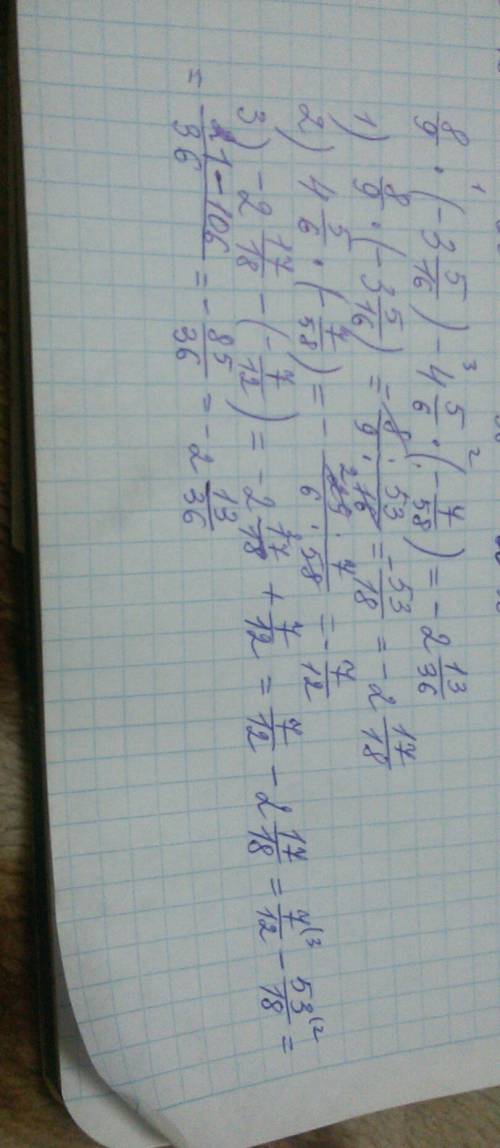 8/9 · (-3 5/16) - 4 5/6 · (-7/58) = -2 13/36
1) 8/9 · (-3 5/16) = - 8 · 53 / 9 · 16 = -53/18 = -2 17/18
2) 4 5/6 · (-7/58) = - 29 · 7 / 6 · 58 = -7/12
3) -2 17/18 - (-7/12) = -2 17/18 + 7/12 = 7/12 - 2 17/18 = 7/12 (3 - 53/18 (2 =
= 21-106/36 = -85/36 = -2 13/36